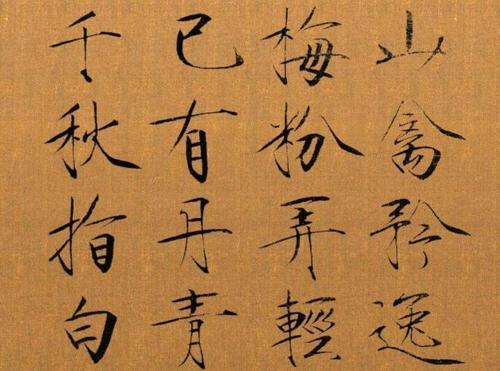 山禽矜逸
梅粉弄輕
已有丹青
千秋指白